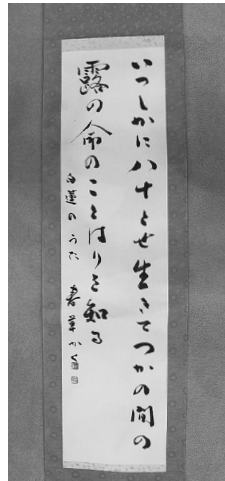 いつしかに八十とせ生きてつかの間の
露の命のことはりを知る
白蓮のうた 書草かく